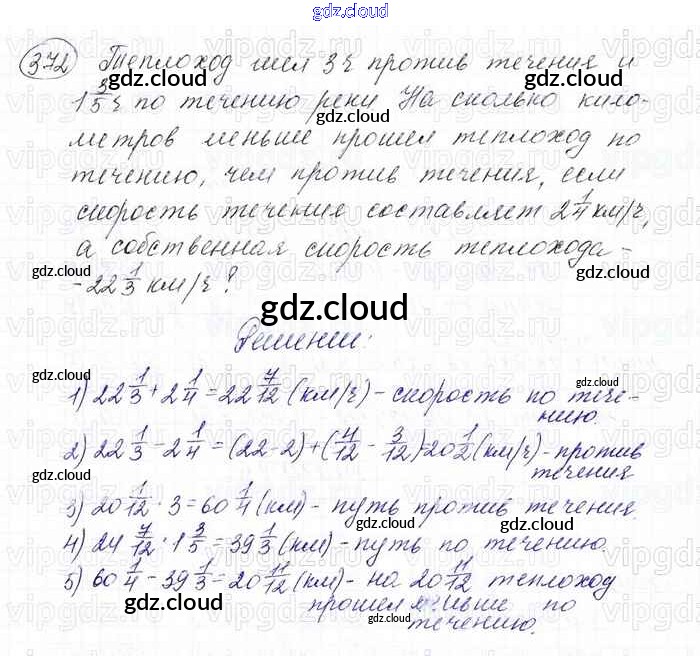 gdz.cloud
372 Теплоход шел 3ч против течения и
1 3/5 ч по течению реки. На сколько кило-
метров меньше прошел теплоход по
течению, чем против течения, если
скорость течения составляет 2 1/4 км/ч,
а собственная скорость теплохода -
- 22 1/3 км/ч?
gdz.cloud
Решение:
1) 22 1/3 + 2 1/4 = 22 7/12 (км/ч) - скорость по тече-
нию.
2) 22 1/3 - 2 1/4 = (22-2) + (4/12 - 3/12) = 20 1/2 (км/ч) - против
течения
3) 20 1/12 · 3 = 60 1/4 (км) - путь против течения.
4) 24 7/12 · 1 3/5 = 39 1/3 (км) - путь по течению.
5) 60 1/4 - 39 1/3 = 20 11/12 (км) - на 20 11/12 теплоход
прошел меньше по
течению.
gdz.cloud